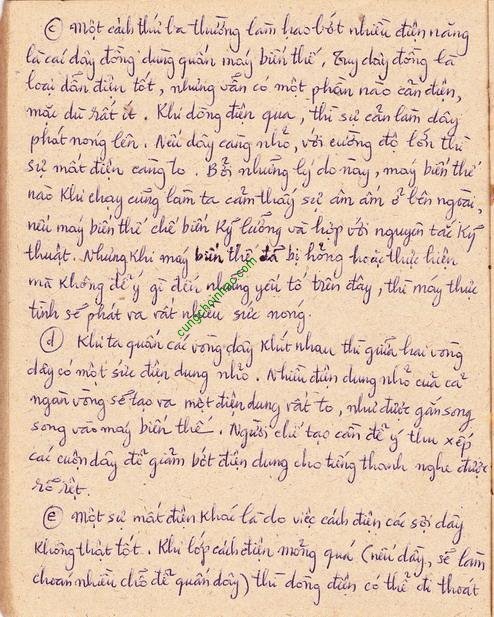 c) Một cách thứ ba thường làm hao bớt nhiều điện năng
là cái dây đồng dùng quấn máy biến thế. Tuy dây đồng là
loại dẫn điện tốt, nhưng vẫn có một phần nào cản điện,
mặc dù rất ít. Khi dòng điện qua, thì sự cản làm dây
phát nóng lên. Nếu dây càng nhỏ, với cường độ lớn thì
sự mất điện càng to. Bởi những lý do này, máy biến thế
nào khi chạy cũng làm ta cảm thấy sự âm ấm ở bên ngoài,
nếu máy biến thế chế biến kỹ lưỡng và hợp với nguyên tắc kỹ
thuật. Nhưng khi máy biến thế đã bị hỏng hoặc thực hiện
mà không để ý gì đến những yếu tố trên đây, thì máy thực
tình sẽ phát ra rất nhiều sức nóng.
cungchoinhac.com
d) Khi ta quấn các vòng dây khít nhau thì giữa hai vòng
dây có một sức điện dung nhỏ. Nhiều điện dung nhỏ của cả
ngàn vòng sẽ tạo ra một điện dung rất to, như được gắn song
song vào máy biến thế. Người chế tạo cần để ý thu xếp
cái cuộn dây để giảm bớt điện dung cho tiếng thanh nghe được
rõ rệt.
e) Một sự mất điện khác là do việc cách điện các sợi dây
không thật tốt. Khi lớp cách điện mỏng quá (nếu dầy, sẽ làm
choán nhiều chỗ để quấn dây) thì dòng điện có thể đi thoát